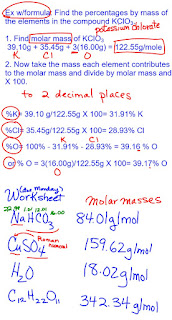 Ex w/formula: Find the percentages by mass of
the elements in the compound KClO3.
potassium chlorate
1. Find molar mass of KClO3
39.10g + 35.45g + 3(16.00g) = 122.55g/mole
K Cl O
2. Now take the mass each element contributes
to the molar mass and divide by molar mass and
X 100.
to 2 decimal places
%K= 39.10 g/122.55g X 100= 31.91% K
%Cl= 35.45g/122.55g X 100= 28.93% Cl
K Cl
%O= 100% - 31.91% - 28.93% = 39.16 % O
or % O = 3(16.00g)/122.55g X 100= 39.17% O
O
(due Monday)
Worksheet
molar masses
22.99 1.01 12.01 16.00
NaHCO3 84.01g/mol
Roman numeral
CuSO4 159.62g/mol
H2O 18.02g/mol
C12H22O11 342.34g/mol